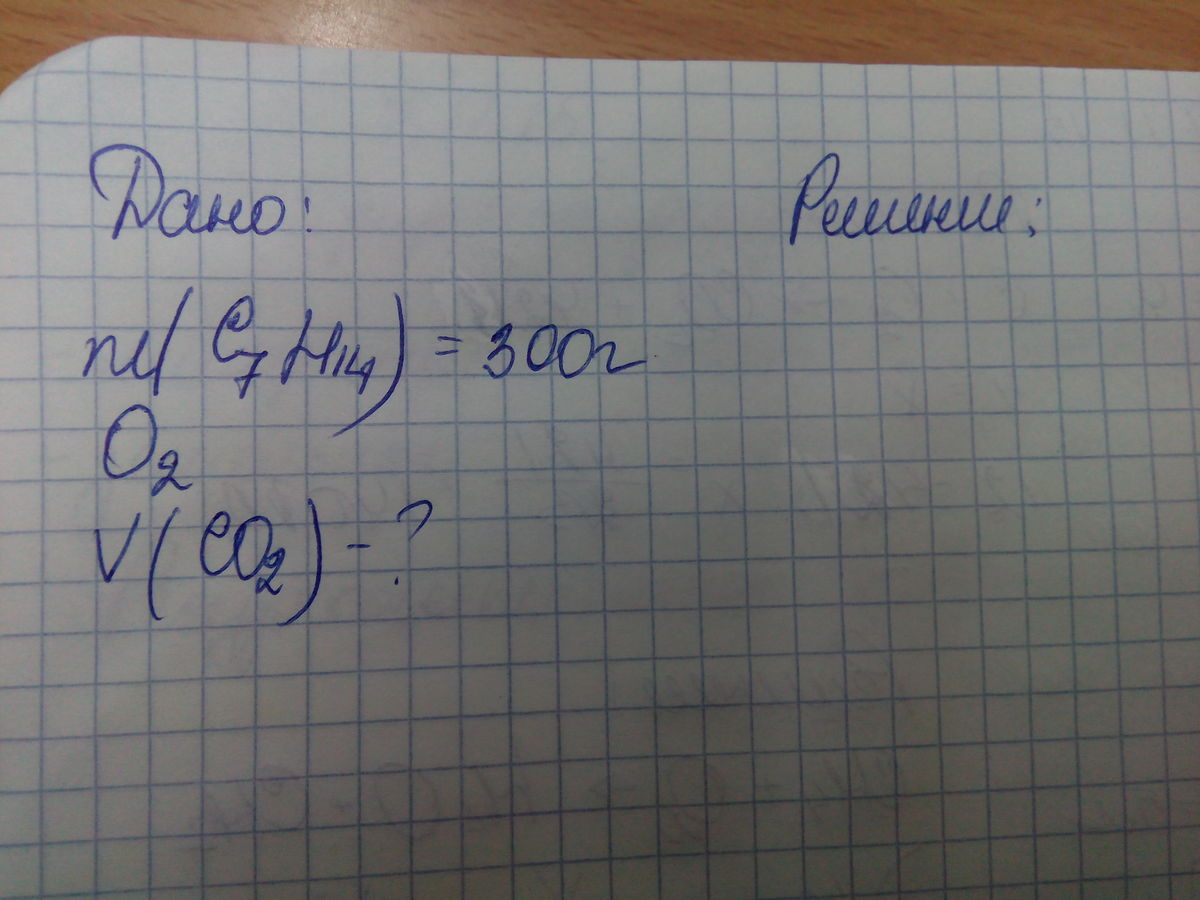 Дано: Решение:
m(C₇H₁₄) = 300г
O₂
V(CO₂) - ?